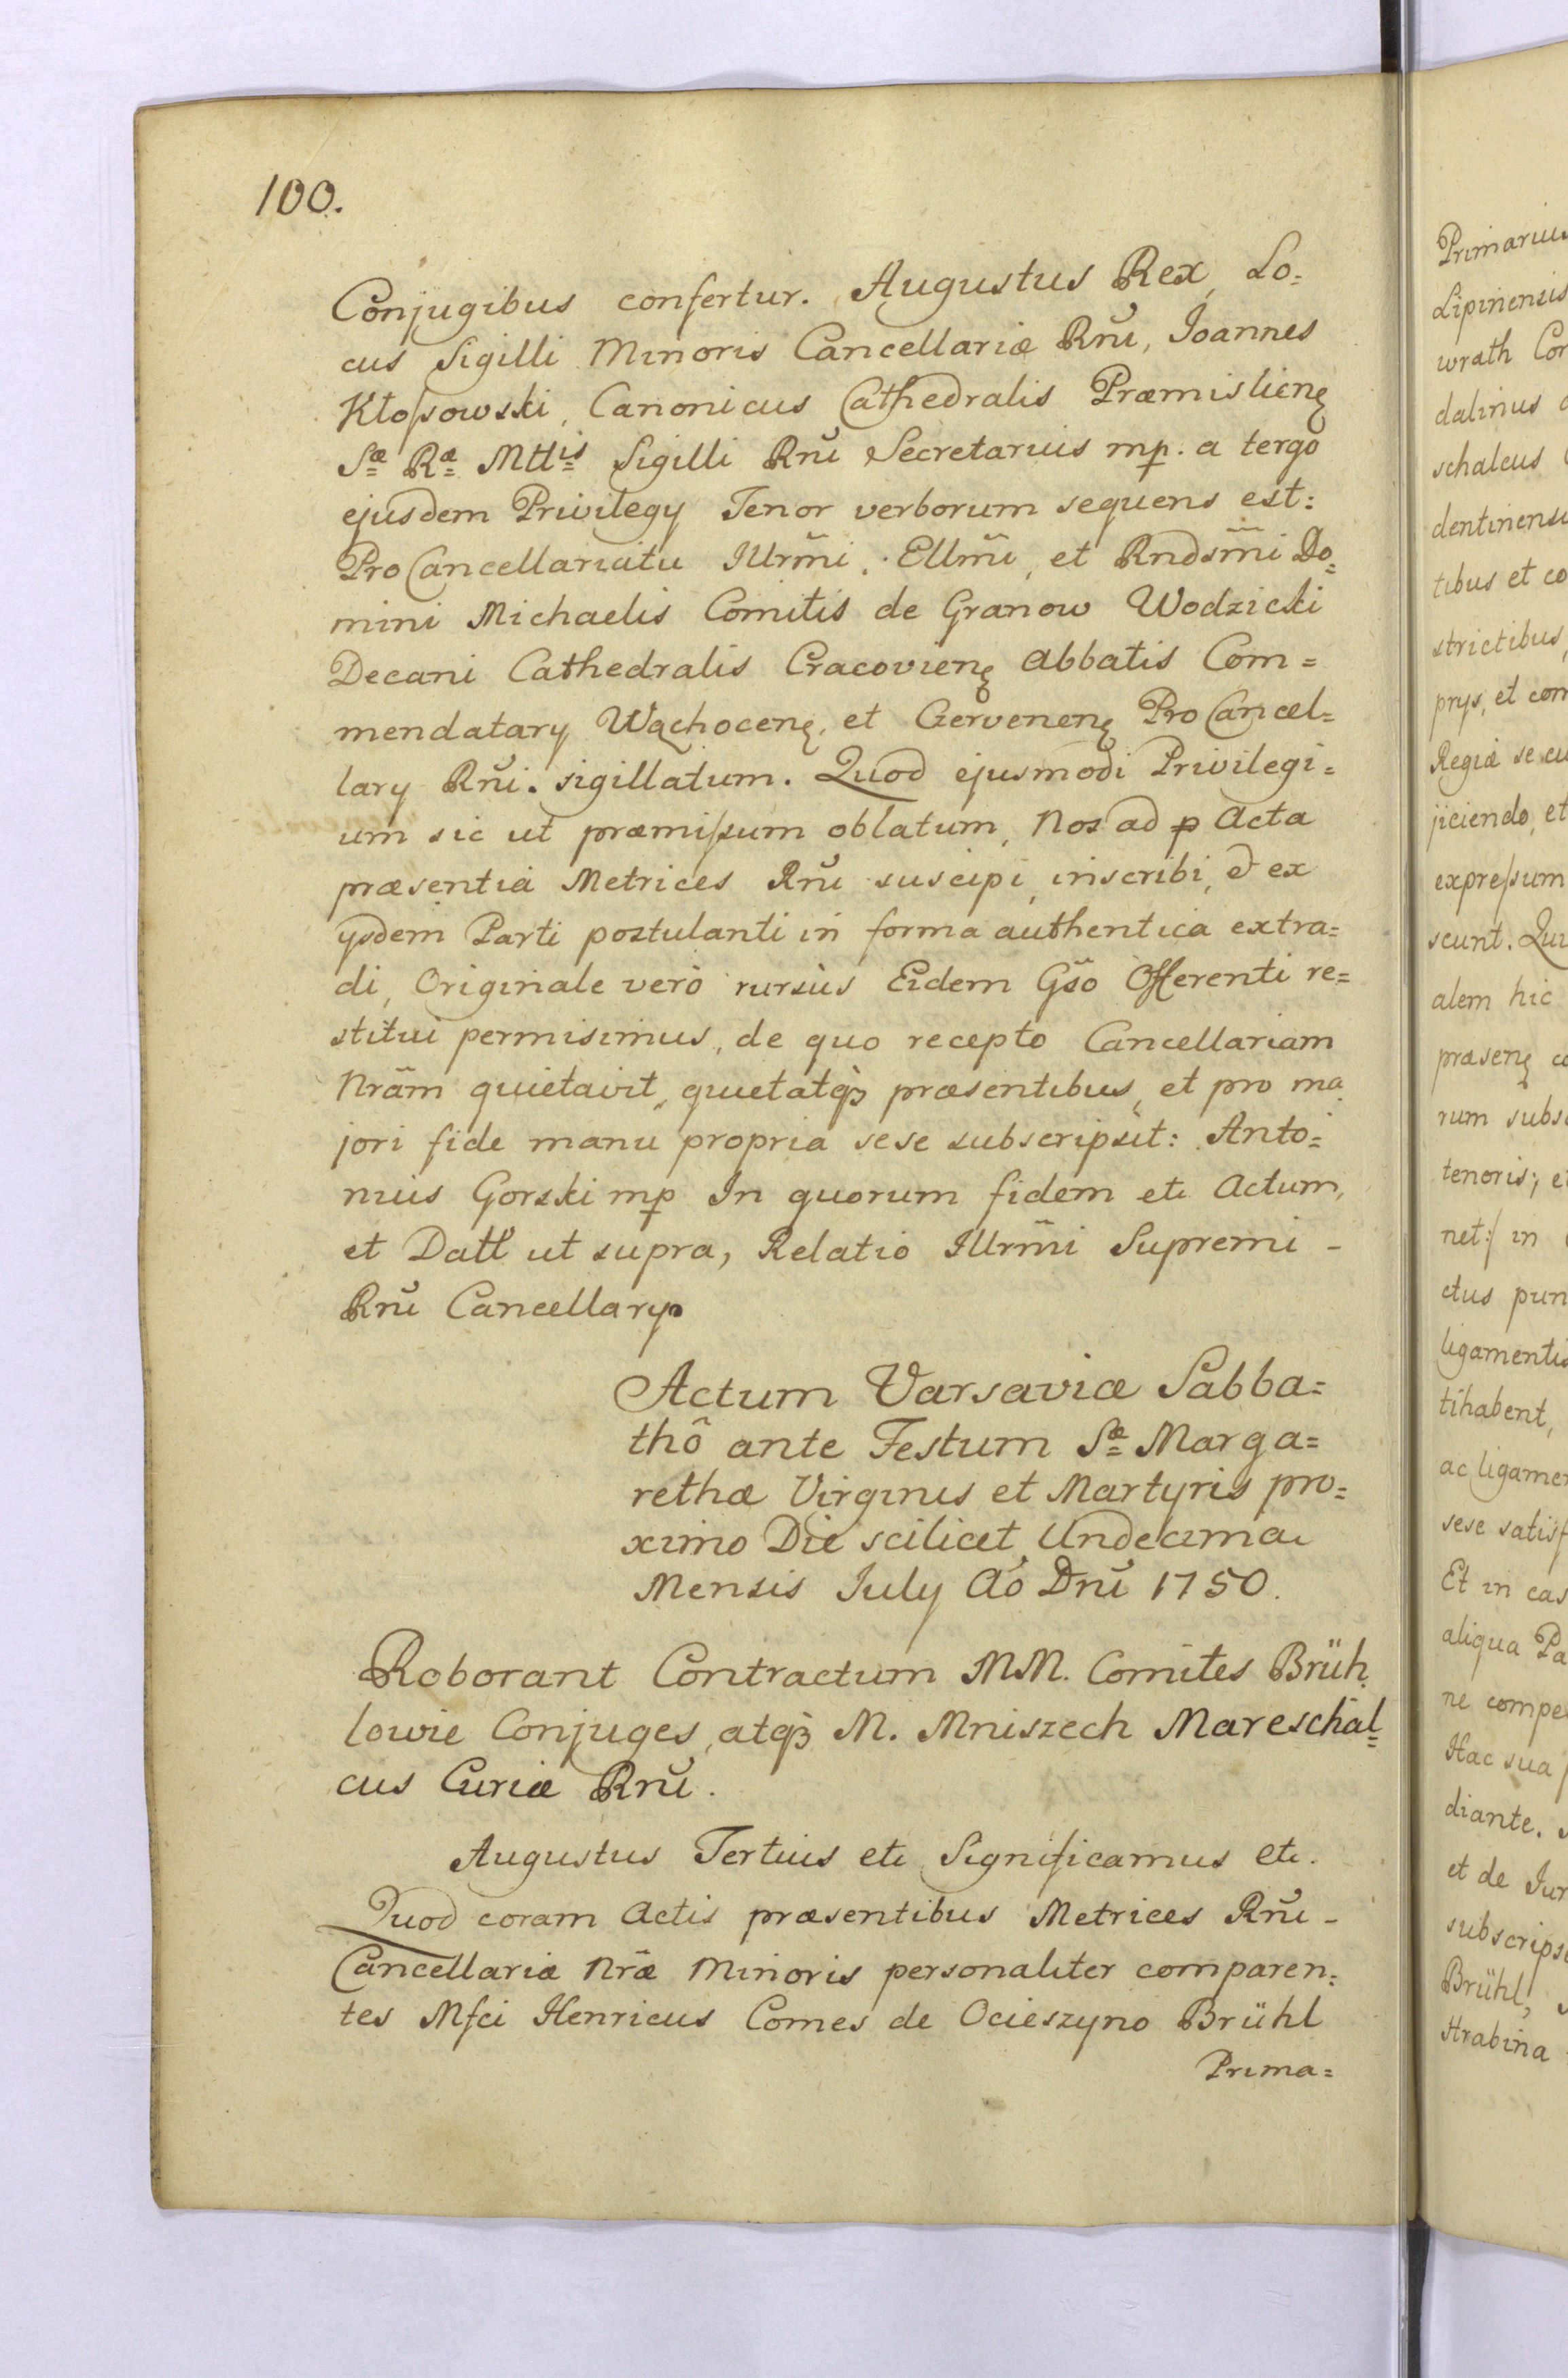 100.
Conjugibus confertur. Augustus Rex, Lo=
cus Sigilli Minoris Cancellariæ Rnĩ, Joannes
Kłoſsowski, Canonicus Cathedralis Præmislienę
Sæ Ræ Mttis Sigilli Rnĩ Secretarius mp. a tergo
ejusdem Privilegy Tenor verborum sequens est:
ProCancellariatu Illrm̃i, Ellm̃i, et Rndsm̃i Do=
mini Michaelis Comitis de Granow Wodzicki
Decani Cathedralis Cracovienę Abbatis Com=
mendatary Wąchocenę, et Czervenenę ProCancel=
lary Rnĩ. sigillatum. Quod ejusmodi Privilegi=
um sic ut præmiſsum oblatum, Nos ad p Acta
præsentia Metrices Rnĩ suscipi, inscribi, & ex
ysdem Parti postulanti in forma authentica extra=
di, Originale verò rursùs Eidem Gső Offerenti re=
stitui permisimus, de quo recepto Cancellariam
Nrãm quietavit, quietatqȝ præsentibus, et pro ma
jori fide manu propria sese subscripsit: Anto=
nius Gorski mp In quorum fidem etc Actum,
et Datt ut supra, Relatio Illrm̃i Supremi -
Rnĩ Cancellary.
Actum Varsaviæ Sabba=
thô ante Festum Sæ Marga=
rethæ Virginis et Martyris pro=
ximo Die scilicet Undecima
Mensis July Aõ Dnĩ 1750.
Roborant Contractum MM. Comites Brüh
lowie Conjuges, atqȝ M. Mniszech Mareschal=
cus Curiæ Rnĩ.
Augustus Tertius etc Significamus etc.
Quod coram Actis præsentibus Metrices Rnĩ -
Cancellariæ Nræ̃ Minoris personaliter comparen=
tes Mfci Henricus Comes de Ocieszyno Brühl
Prima=
Primarius
Lipinensis
wrath
dalinus
schalcus
tibus et co
strictibus,
prys, et com
Regiæ se cu
jiciendo, et
expreſsum
scunt.
alem hic
præsenę
rum subs
tenoris; et
net:/ in
ctus pun
ligamentis
tihabent,
ac ligamen
sese satisf
Et in cas
aliqua Pa
ne compe
Hac sua
diante.
et de Jur
subscrips
Brühl,
Hrabina